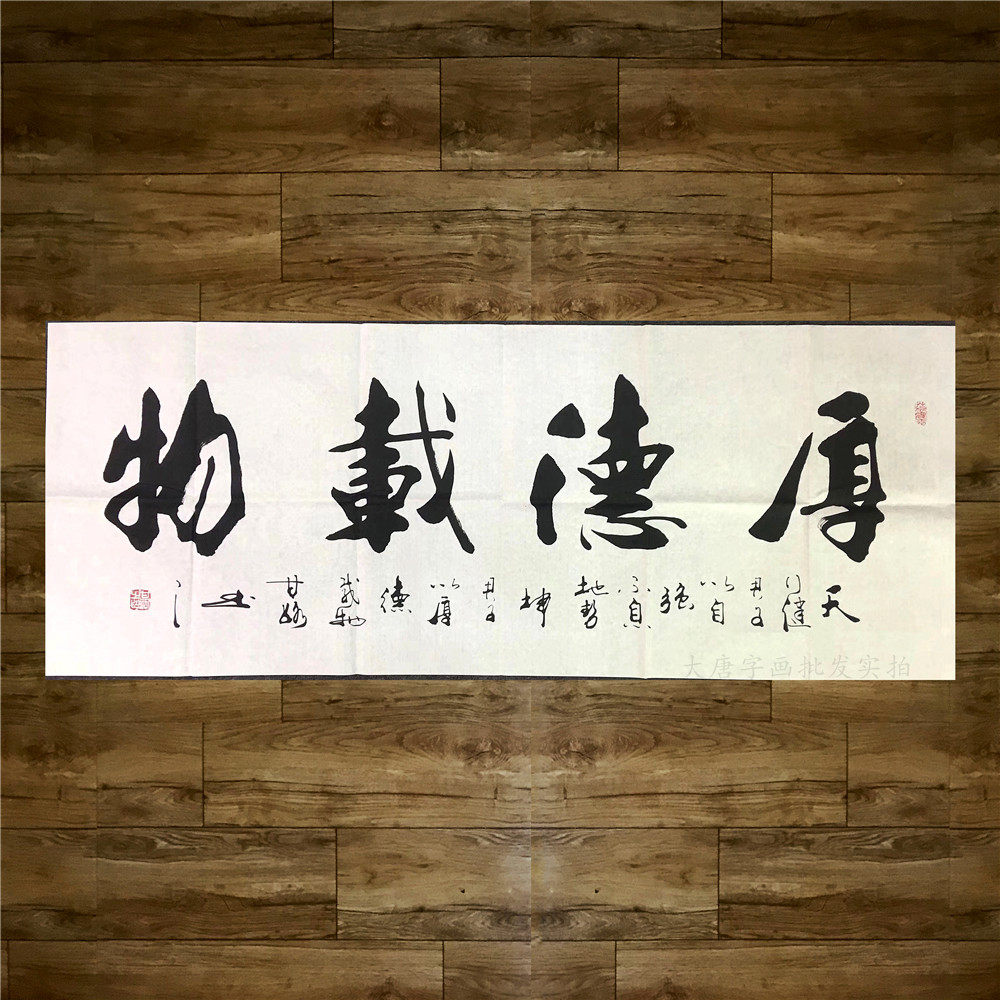 厚德载物
天行健君子以自强不息地势坤君子以厚德载物
书
大唐字画批发实拍